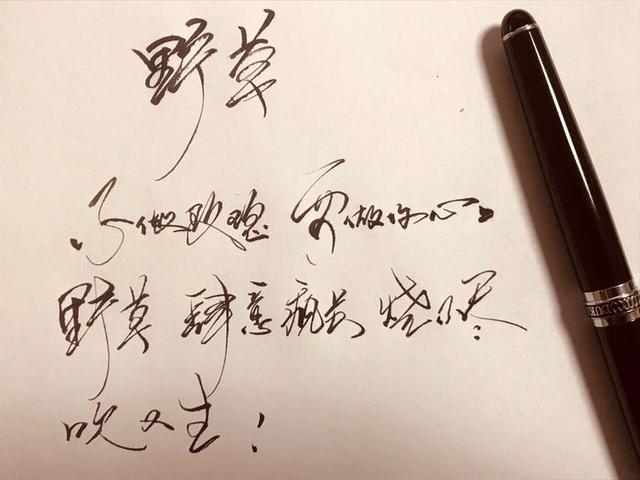 野草
不做玫瑰 要做你心
野草 肆意疯长 烧不尽
吹又生！